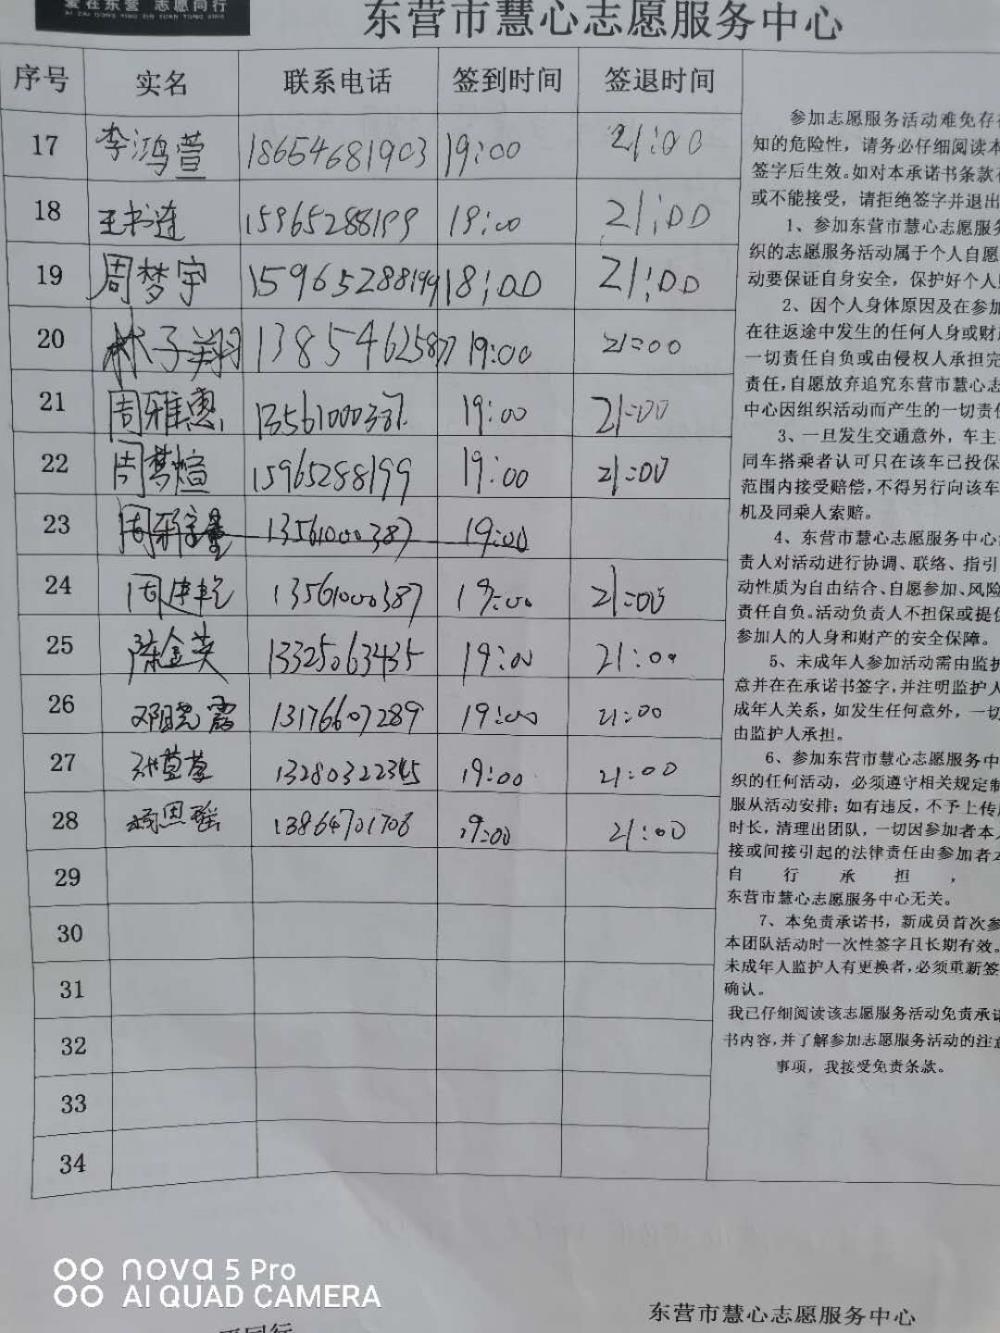 爱在东营 志愿同行
AI ZAI DONG YING ZHI YUAN TONG XING
东营市慧心志愿服务中心
序号 实名 联系电话 签到时间 签退时间
17 李鸿萱 18654681903 19:00 21:00
18 王书莲 15965288199 19:00 21:00
19 周梦宇 15965288199 18:00 21:00
20 林子翔 13854625877 19:00 21:00
21 周雅惠 13561000387 19:00 21:00
22 周梦煊 15965288199 19:00 21:00
23 13561000387 19:00
24 13561000387 19:00 21:00
25 陈金英 13325063435 19:00 21:00
26 邓晓霞 13176607289 19:00 21:00
27 13280322345 19:00 21:00
28 杨恩瑶 13864701708 19:00 21:00
29
30
31
32
33
34
参加志愿服务活动难免存在
知的危险性，请务必仔细阅读本
签字后生效。如对本承诺书条款有
或不能接受，请拒绝签字并退出
1、参加东营市慧心志愿服务
织的志愿服务活动属于个人自愿
动要保证自身安全，保护好个人
2、因个人身体原因及在参加
在往返途中发生的任何人身或财产
一切责任自负或由侵权人承担完
责任，自愿放弃追究东营市慧心志
中心因组织活动而产生的一切责任
3、一旦发生交通意外，车主
同车搭乘者认可只在该车已投保
范围内接受赔偿，不得另行向该车
机及同乘人索赔。
4、东营市慧心志愿服务中心
责人对活动进行协调、联络、指引
动性质为自由结合、自愿参加、风险
责任自负。活动负责人不担保或提供
参加人的人身和财产的安全保障。
5、未成年人参加活动需由监护
意并在在承诺书签字，并注明监护人
成年人关系，如发生任何意外，一切
由监护人承担。
6、参加东营市慧心志愿服务中
织的任何活动，必须遵守相关规定制
服从活动安排；如有违反，不予上传
时长，清理出团队，一切因参加者本人
接或间接引起的法律责任由参加者本
自行承担，
东营市慧心志愿服务中心无关。
7、本免责承诺书，新成员首次参
本团队活动时一次性签字且长期有效。
未成年人监护人有更换者，必须重新签
确认。
我已仔细阅读该志愿服务活动免责承诺
书内容，并了解参加志愿服务活动的注意
事项，我接受免责条款。
nova 5 Pro
AI QUAD CAMERA
东营市慧心志愿服务中心